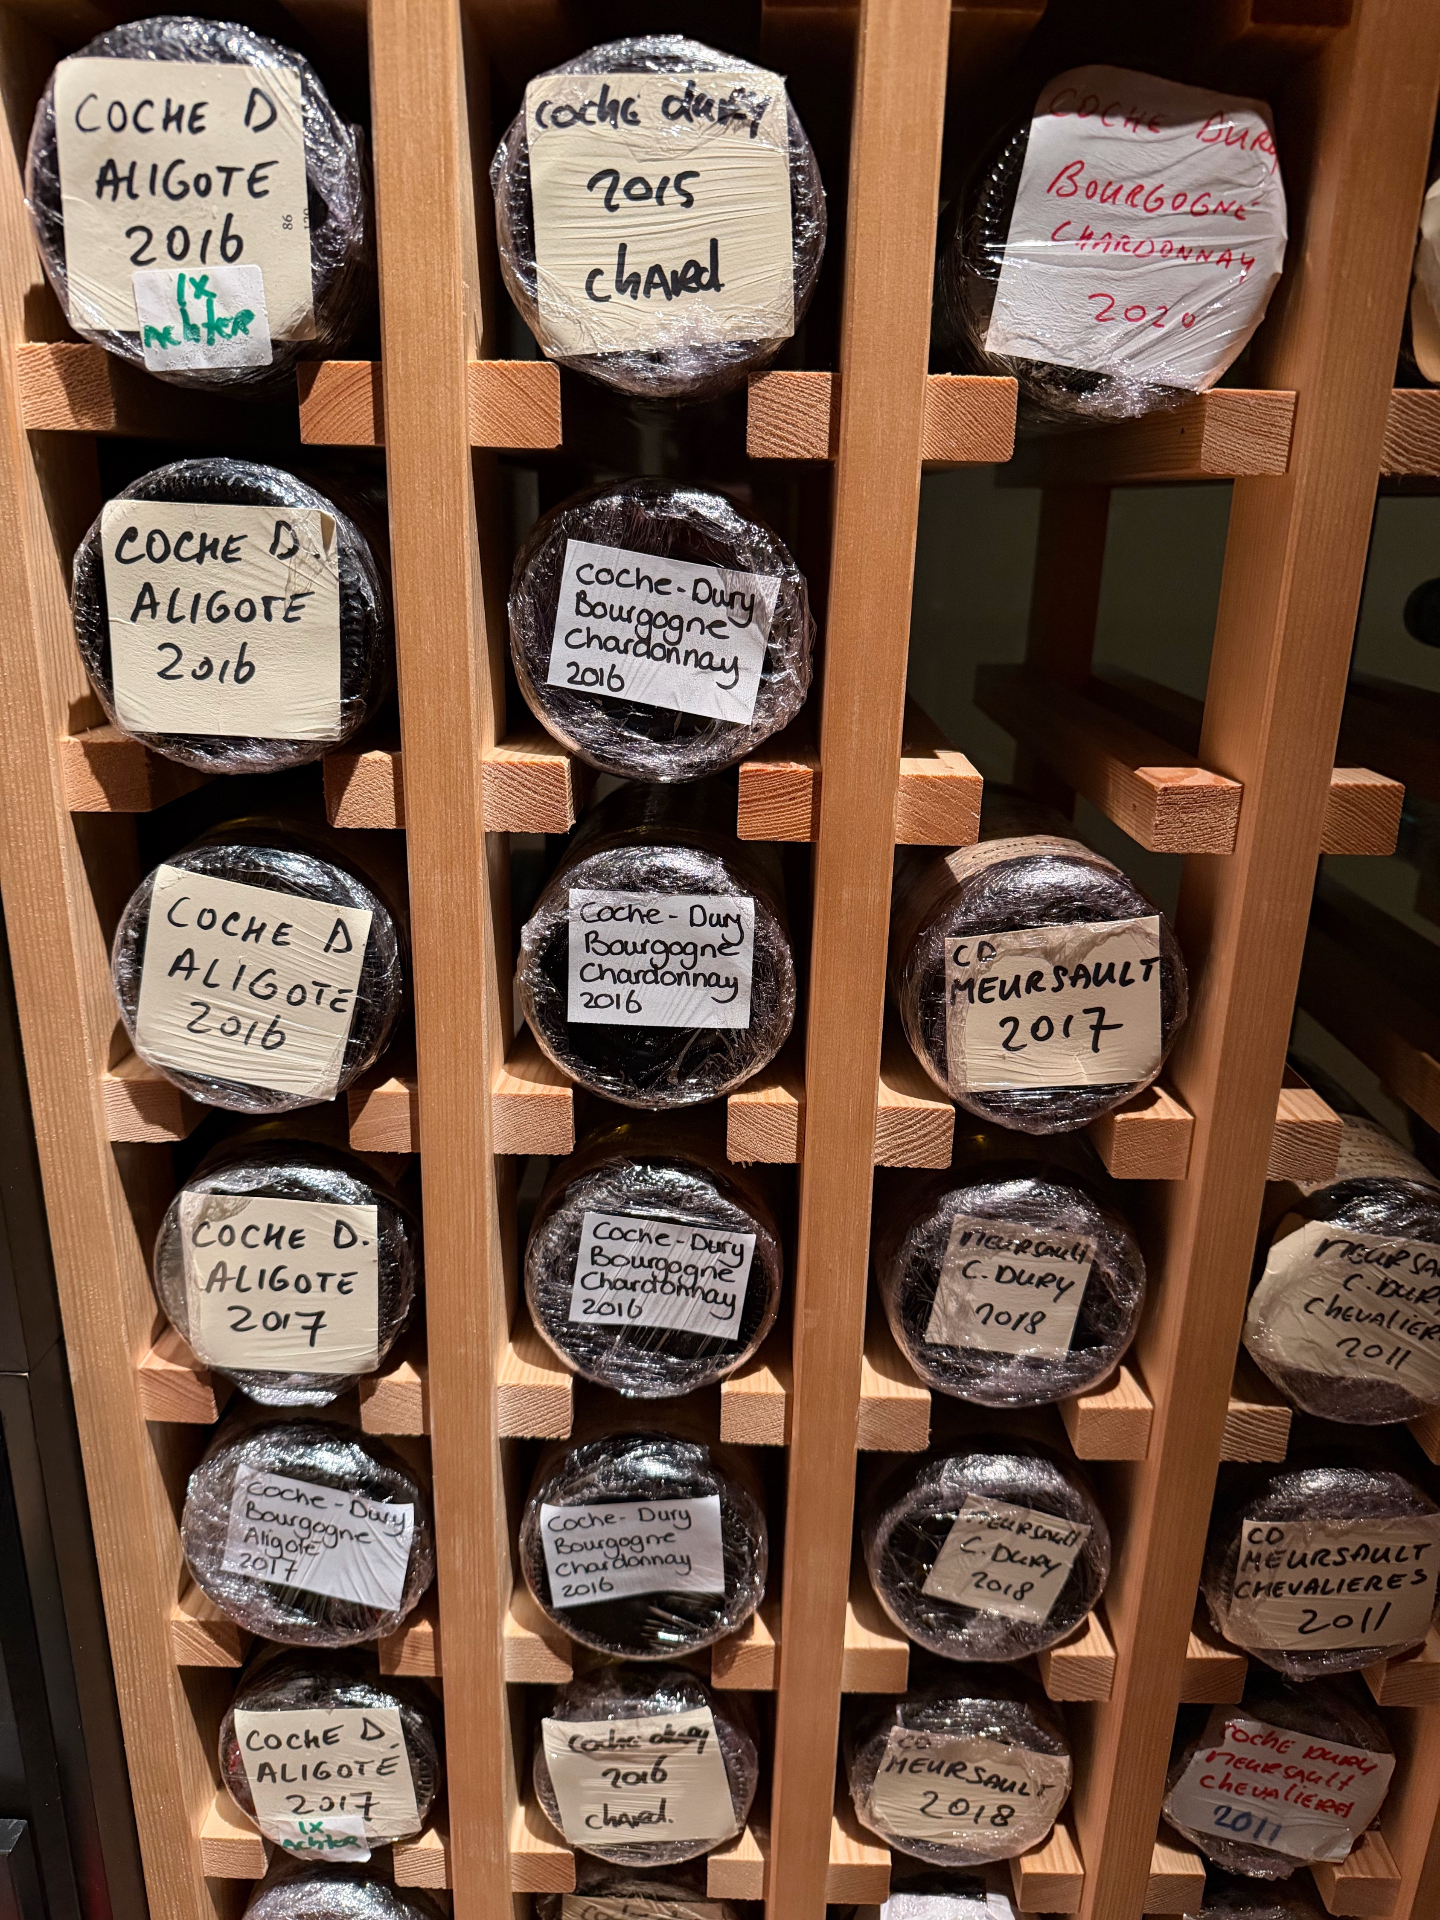 COCHE D
ALIGOTE
2016
86
1x
achter
coche dury
2015
chard
COCHE DURY
BOURGOGNE
CHARDONNAY
2020
COCHE D.
ALIGOTE
2016
Coche-Dury
Bourgogne
Chardonnay
2016
COCHE D.
ALIGOTE
2016
Coche-Dury
Bourgogne
Chardonnay
2016
CD
MEURSAULT
2017
COCHE D.
ALIGOTE
2017
Coche-Dury
Bourgogne
Chardonnay
2016
MEURSAULT
C. DURY
2018
MEURSA
C. DUR
CHEVALIER
2011
Coche-Dury
Bourgogne
Aligoté
2017
Coche-Dury
Bourgogne
Chardonnay
2016
MEURSAULT
C. DURY
2018
CD
MEURSAULT
CHEVALIERES
2011
COCHE D.
ALIGOTÉ
2017
1x
achter
coche dury
2016
chard.
CD
MEURSAULT
2018
coche DURY
meursault
chevalieres
2011